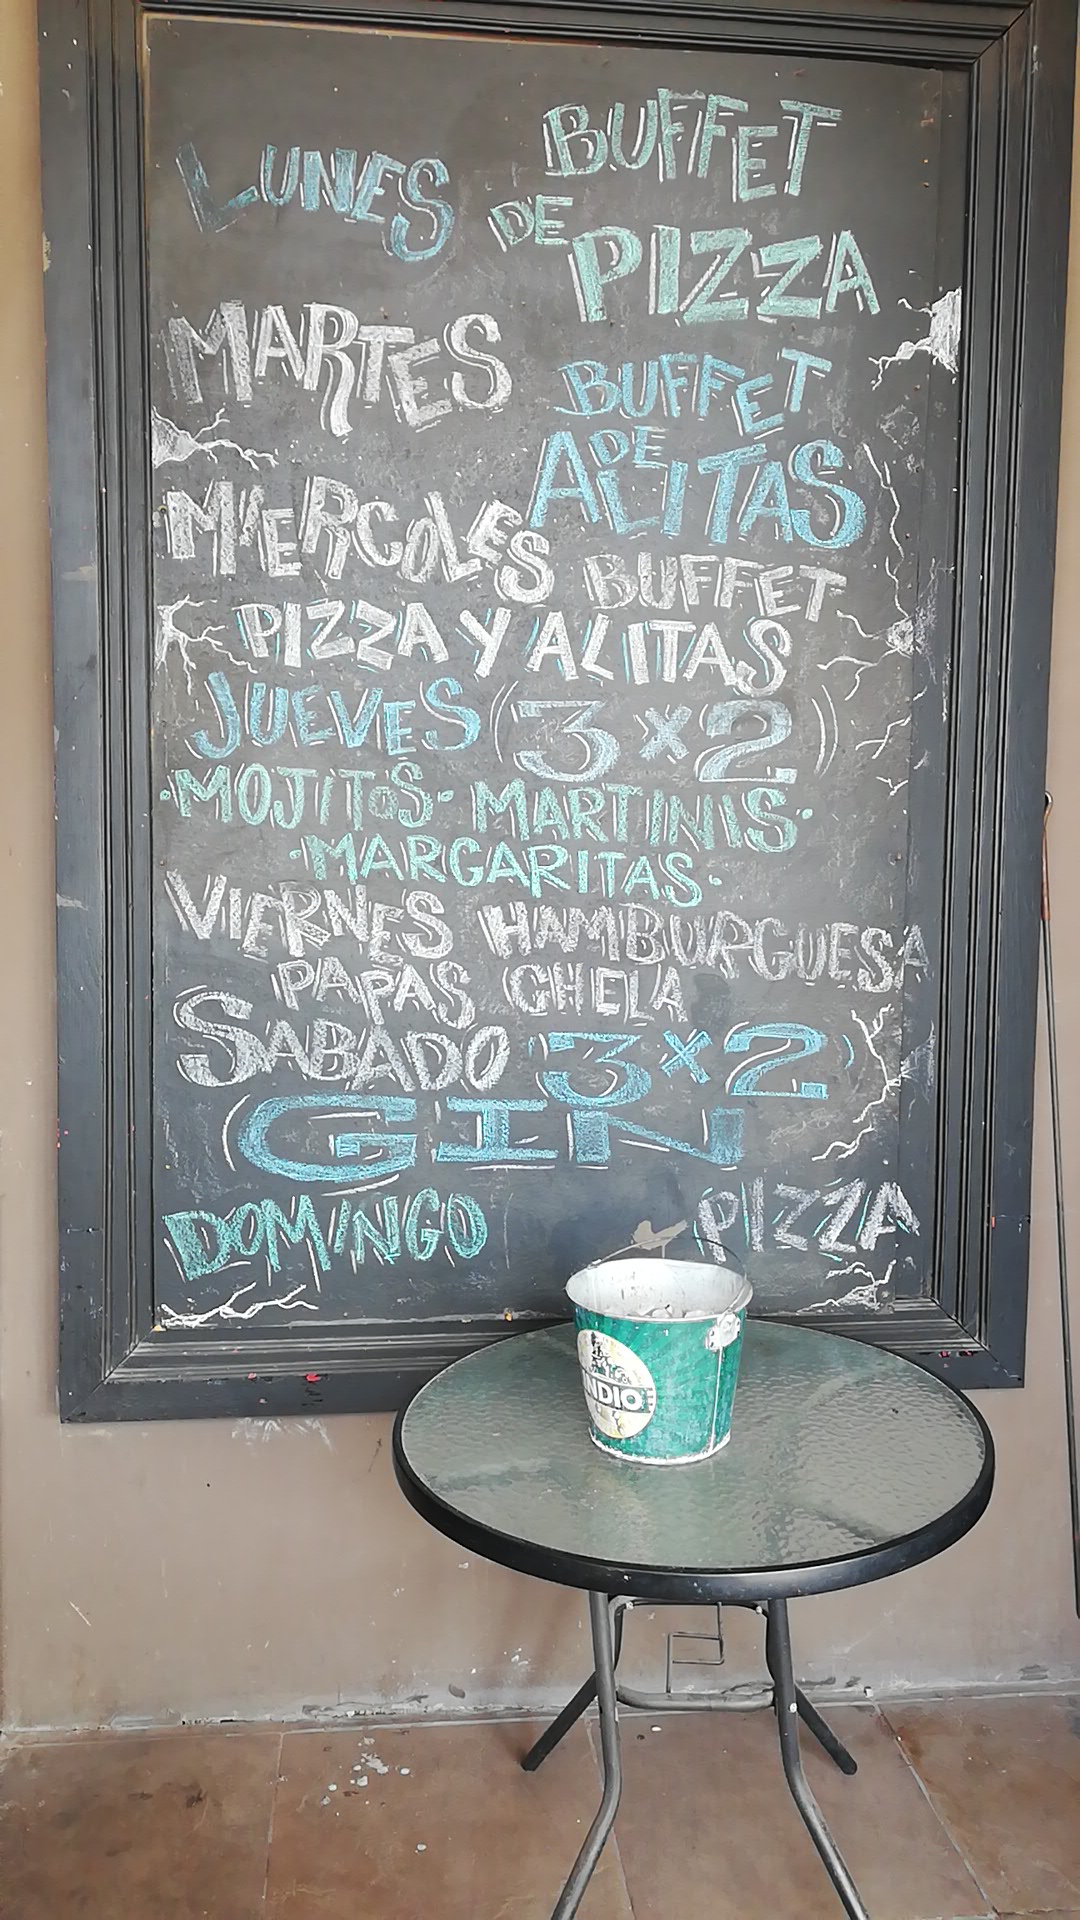 LUNES BUFFET
DE PIZZA
MARTES BUFFET
DE
ALITAS
MIERCOLES BUFFET
PIZZA Y ALITAS
JUEVES (3x2)
·MOJITOS· MARTINIS·
·MARGARITAS·
VIERNES HAMBURGUESA
PAPAS CHELA
SABADO 3x2
GIN
DOMINGO PIZZA
NDIO